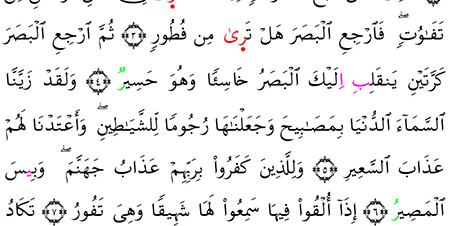 تَفَٰوُتٍۖ فَٱرْجِعِ ٱلْبَصَرَ هَلْ تَرِىٰ مِن فُطُورٍ ﴿٣﴾ ثُمَّ ٱرْجِعِ ٱلْبَصَرَ
كَرَّتَيْنِ يَنقَلِبِ اِلَيْكَ ٱلْبَصَرُ خَاسِئًا وَهُوَ حَسِيرٌ ﴿٤﴾ وَلَقَدْ زَيَّنَّا
ٱلسَّمَآءَ ٱلدُّنْيَا بِمَصَٰبِيحَ وَجَعَلْنَٰهَا رُجُومًا لِّلشَّيَٰطِينِۖ وَأَعْتَدْنَا لَهُمْ
عَذَابَ ٱلسَّعِيرِ ﴿٥﴾ وَلِلَّذِينَ كَفَرُوا۟ بِرَبِّهِمْ عَذَابُ جَهَنَّمَۖ وَبِيسَ
ٱلْمَصِيرُ ﴿٦﴾ إِذَآ أُلْقُوا۟ فِيهَا سَمِعُوا۟ لَهَا شَهِيقًا وَهِىَ تَفُورُ ﴿٧﴾ تَكَادُ